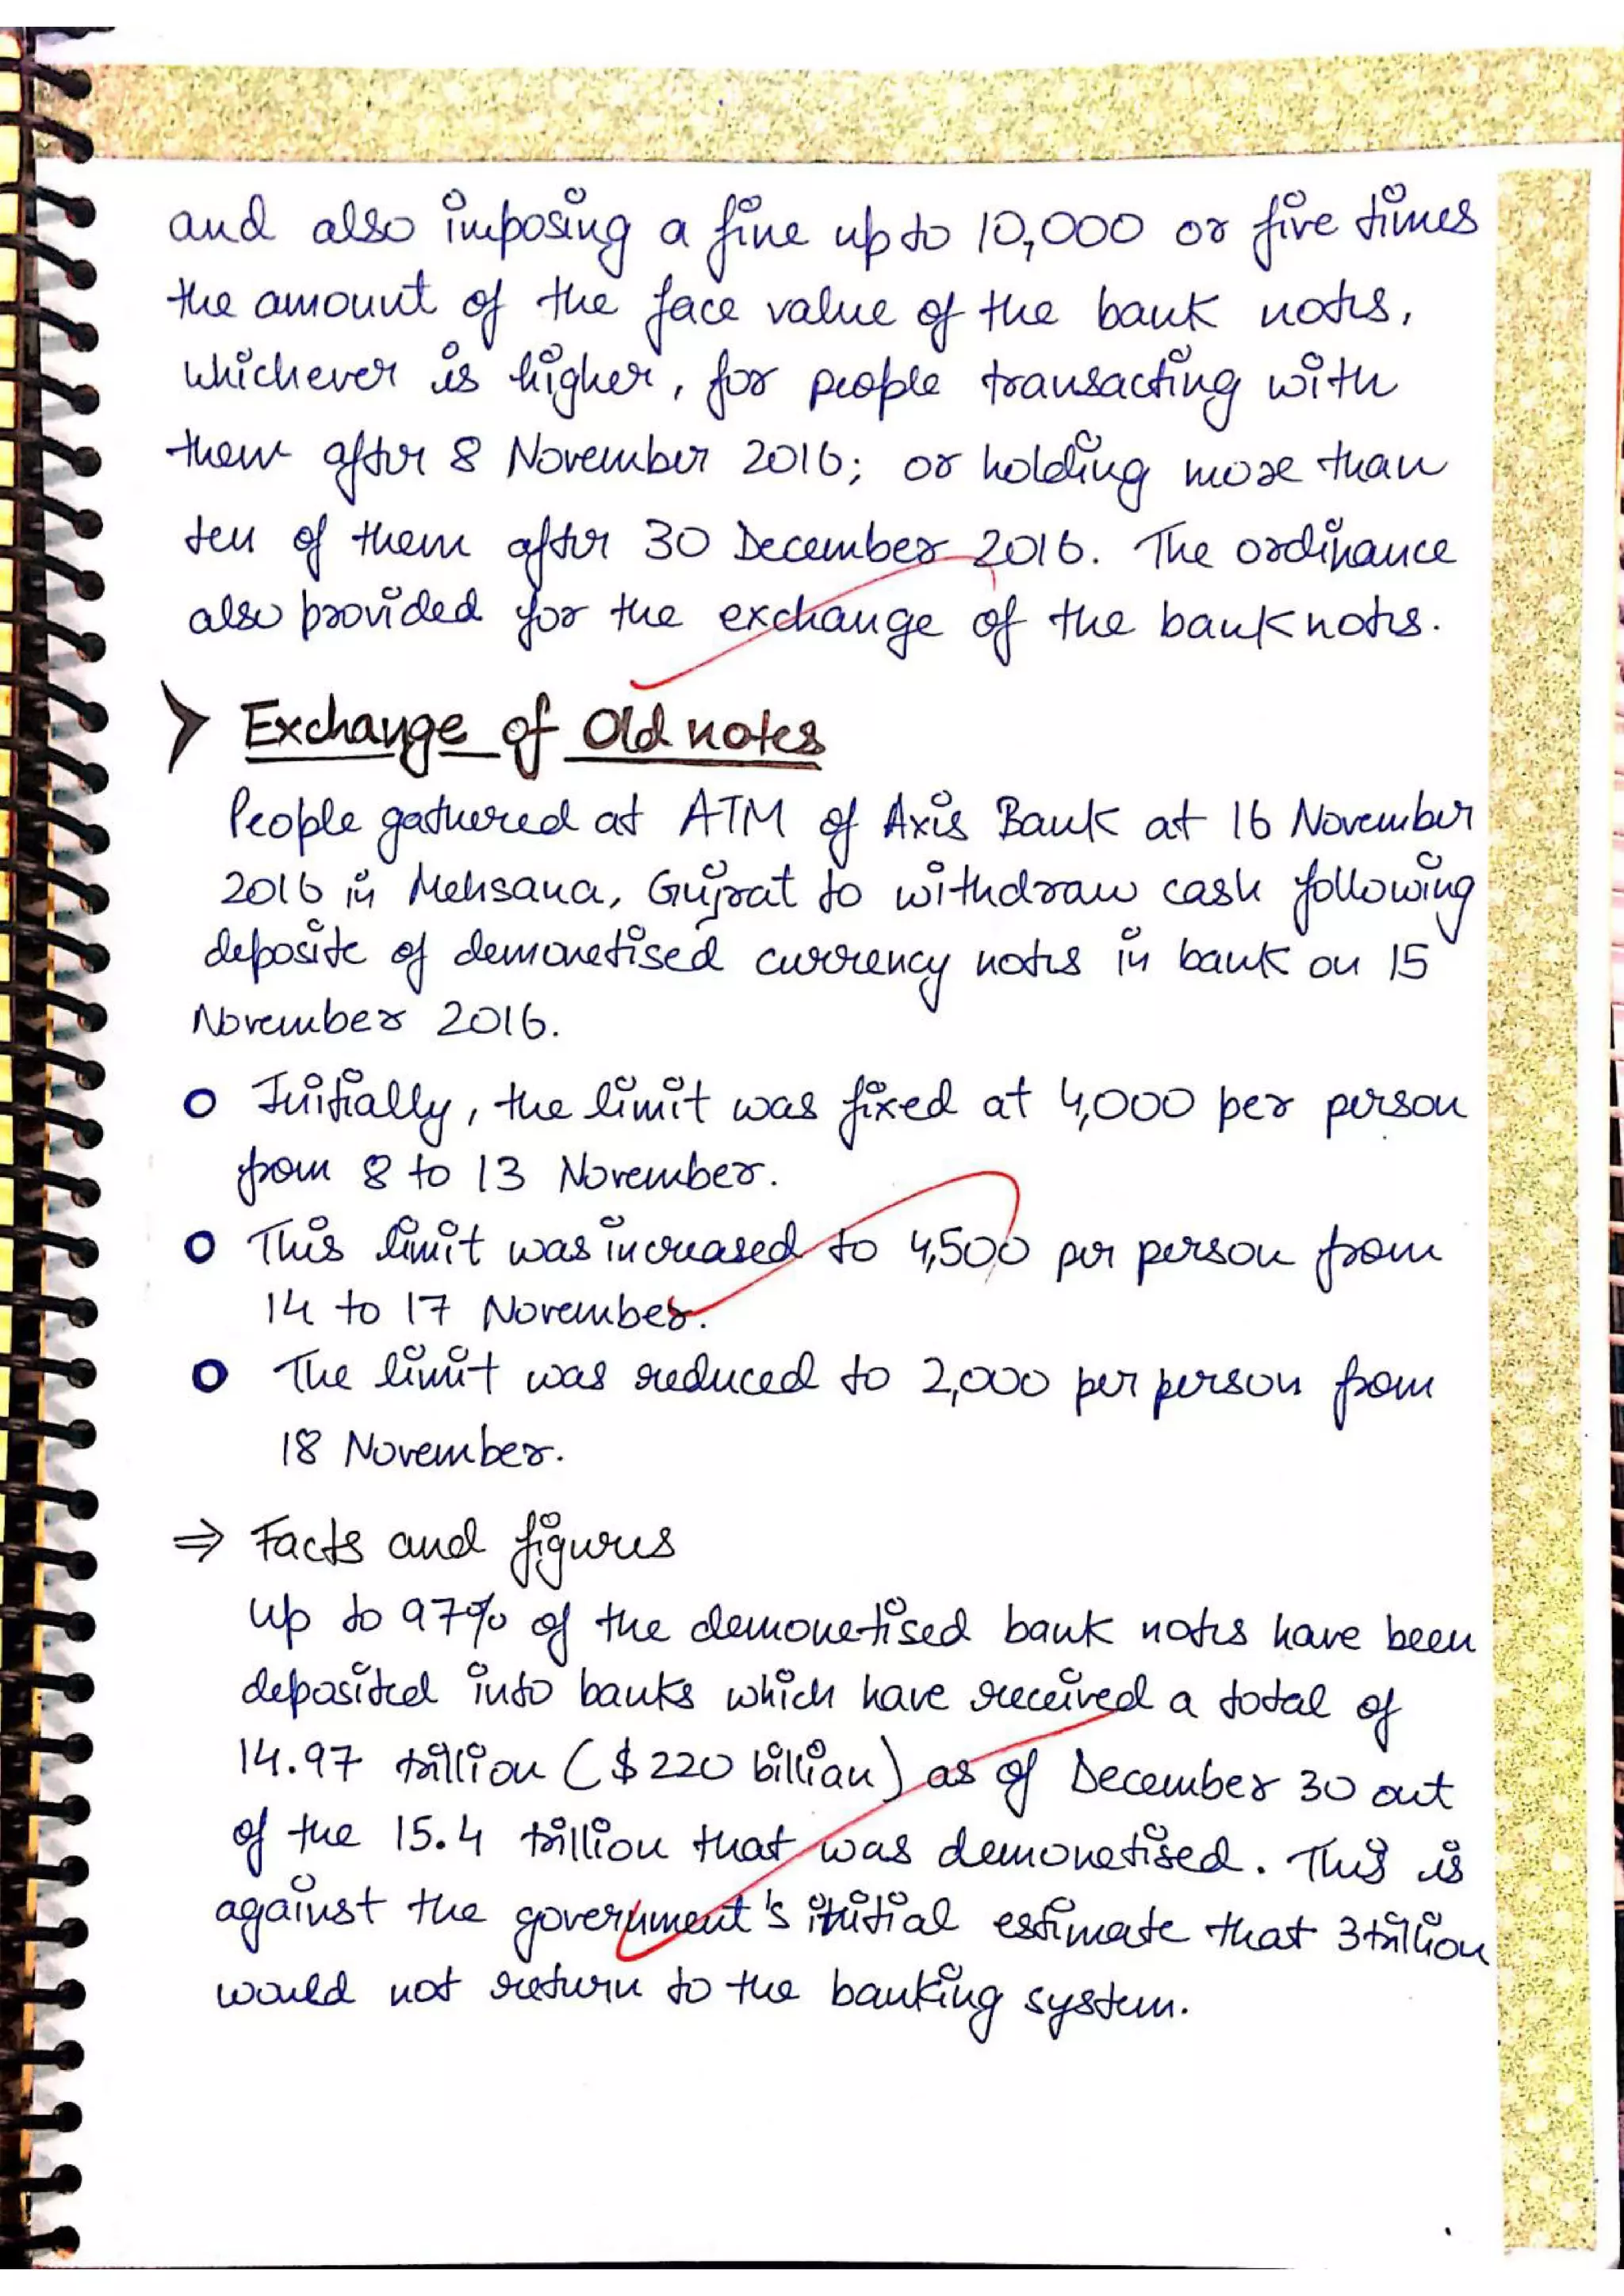 and also imposing a fine up to 10,000 or five times
the amount of the face value of the bank notes,
whichever is higher, for people transacting with
them after 8 November 2016; or holding more than
ten of them after 30 December 2016. The ordinance
also provided for the exchange of the bank notes.
Exchange of Old notes
People gathered at ATM of Axis Bank at 16 November
2016 in Mehsana, Gujrat to withdraw cash following
deposite of demonetised currency notes in bank on 15
November 2016.
Initially, the limit was fixed at 4,000 per person
from 8 to 13 November.
This limit was increased to 4,500 per person from
14 to 17 November.
The limit was reduced to 2,000 per person from
18 November.
⇒ Facts and figures
up to 97% of the demonetised bank notes have been
deposited into banks which have received a total of
14.97 trillion ($220 billion) as of December 30 out
of the 15.4 trillion that was demonetised. This is
against the government's initial estimate that 3 trillion
would not return to the banking system.